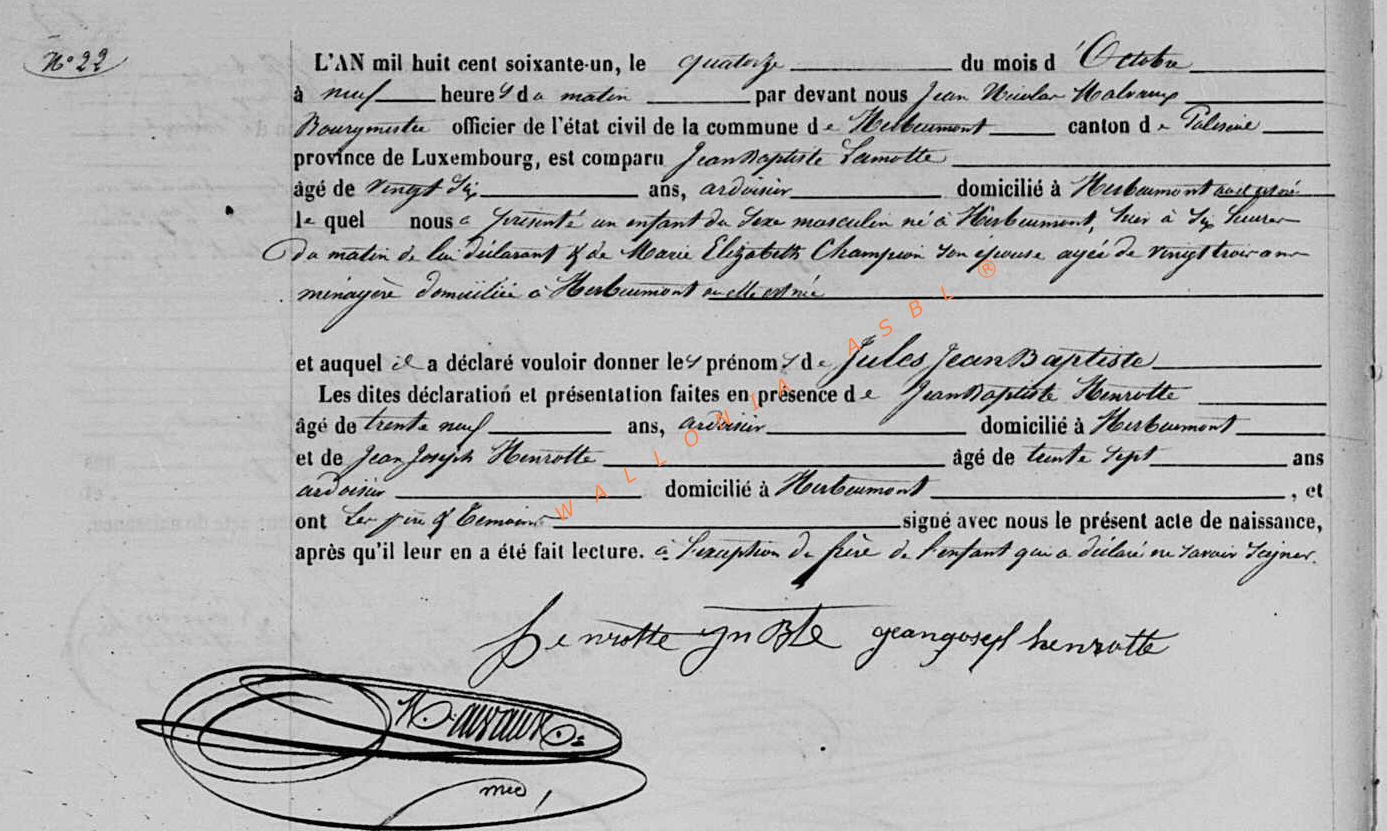 N° 22
L'AN mil huit cent soixante-un, le quatorze du mois d'Octobre
à neuf heures du matin par devant nous Jean Nicolas Malvaux
Bourgmestre officier de l'état civil de la commune de Herbeumont canton de Paliseul
province de Luxembourg, est comparu Jean Baptiste Lamotte
âgé de vingt six ans, ardoisier domicilié à Herbeumont
le quel nous a présenté un enfant du sexe masculin né à Herbeumont, hier à six heures
du matin de lui déclarant & de Marie Elizabeth Champion son épouse agée de vingt trois ans
ménagère domiciliée à Herbeumont où elle est née
et auquel il a déclaré vouloir donner les prénoms de Jules Jean Baptiste
Les dites déclaration et présentation faites en présence de Jean Baptiste Henrotte
âgé de trente neuf ans, ardoisier domicilié à Herbeumont
et de Jean Joseph Henrotte âgé de trente sept ans
ardoisier domicilié à Herbeumont, et
ont Les père & Temoins signé avec nous le présent acte de naissance,
après qu'il leur en a été fait lecture. à l'exception du père de l'enfant qui a déclaré ne savoir signer.
henrotte jn Bte jeanjoseph henrotte
Malvaux
WALLONIA ASBL ®